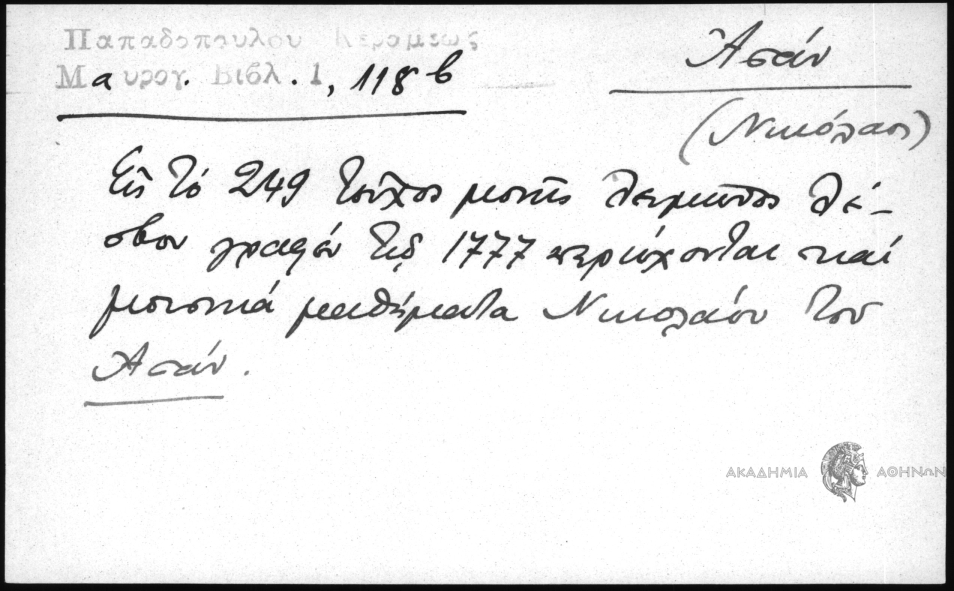 Παπαδοπουλου Κεραμεως
Μαυρογ. Βιβλ. 1, 118β
Ἀσάν
(Νικόλαος)
Εἰς τό 249 τεῦχος μονῆς Λειμῶνος Λέ-
σβου γραφέν τῷ 1777 περιέχονται καί
μουσικά μαθήματα Νικολάου τοῦ
Ἀσάν.
ΑΚΑΔΗΜΙΑ ΑΘΗΝΩΝ